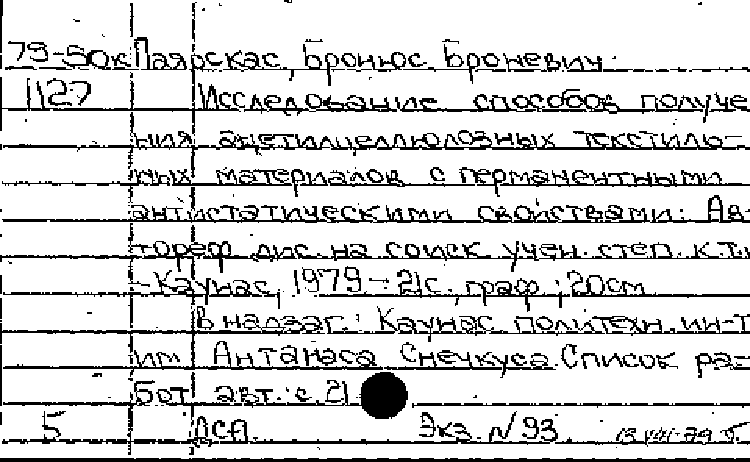 79-50к Паярскас, Бронюс Броневич.
1127 Исследование способов получе
ния ацетилцеллюлозных текстиль-
ных материалов с перманентными
антистатическими свойствами: Ав-
тореф. дис. на соиск. учен. степ. к.т.н
-Каунас, 1979.- 21с., граф.; 20см
В надзаг.: Каунас. политехн. ин-т
им. Антанаса Снечкуса. Список ра-
бот авт.: с. 21
5 ДСА. Экз. N 93. 13.VIII-79